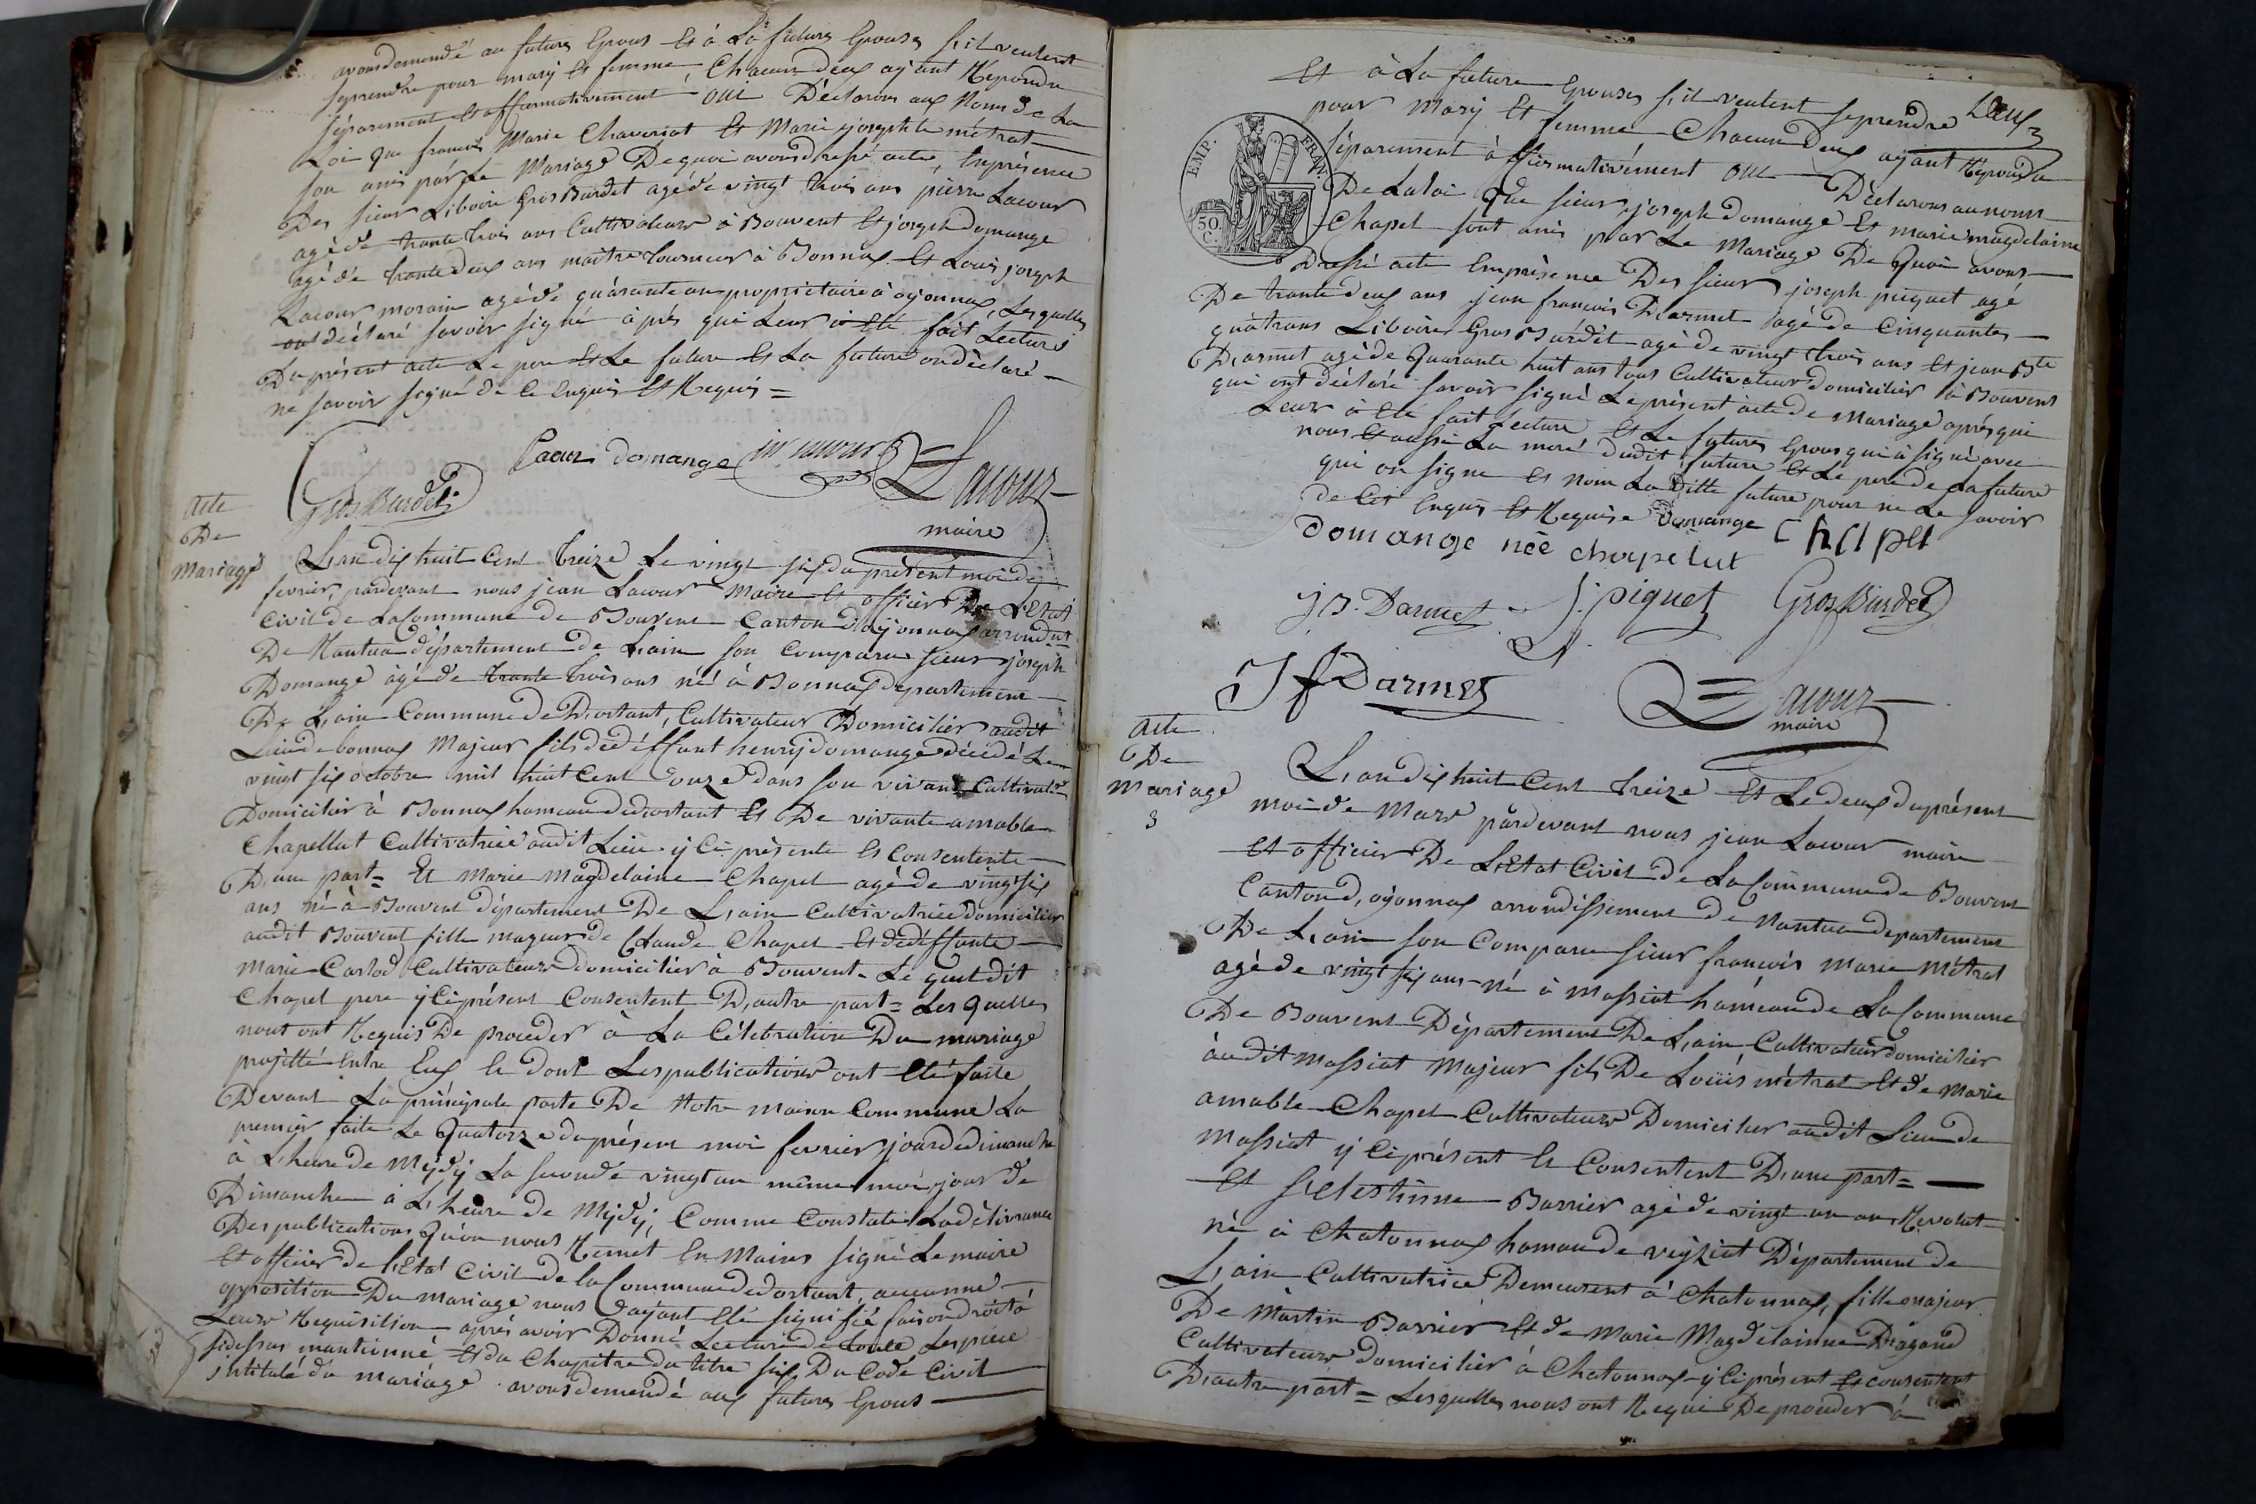 avons demendé au futurs Epous Et à La future Epouse s'il veulent
seprendre pour mary Et femme, Chacun deux ayant Repondu
séparement et affirmativement oui Déclarons aux Nom de La
Loi que francois Marie Chaveriat Et Marie josephte métrat
son unis par Le Mariage De quoi avons dressé acte, En présence
Des sieur Liboire GrosBurdet agé de vingt trois ans pierre Lacour
agé de trante trois ans Cultivateur à Bouvent Et joseph domange
agé de trante deux ans maitre tourneur à Bonnas Et Louis joseph
Lacour morain agé de quarante an propriétaire à oyonnax, Lesquelles
ont déclaré savoir signé àprés qui Leur à Eté fait Lecture
Du présent acte Le pere Et Le future Et La future on déclaré
ne savoir signé de Ce Enquis Et Requis =
Lacour domange
GrosBurdet
Lacour
maire
Acte
De
Mariage
L'an dix huit Cent treize Le vingt six du présent moi de
fevrier, pardevant nous jean Lacour Maire Et officier De L'Etat
Civil de La Commune de Bouvent Canton d'oyonnax arrondmt
De Nantua département de L'ain son Comparu sieur joseph
Domange agé de trante trois ans né à Bonnas departement
De L'ain Commune de Dortant, Cultivateur Domicilier audit
Lieu de bonnas Majeur fils de déffunt henry domange décédé Le
vingt six octobre mil huit Cent douze dans son vivant Cultivatr
Domicilier à Bonnas hameau de dortant Et De vivante amable
Chapellut Cultivatrice audit Lieu y Ci présente Et Consentente
D'une part = Et Marie Magdelaine Chapel agé de vingt six
ans né à Bouvent département De L'ain Cultivatrice domicilier
audit Bouvent fille mageur de Claude Chapel Et de déffunte
Marie Carlod Cultivateur domicilier à Bouvent Le quel dit
Chapel pere y Ci présent Consentent D'autre part = Les quelles
nout ont Requis De proceder à La Célébration Du mariage
projetté Entre Eux Et dont Les publications ont Eté faite
Devant La principale porte De Notre maison Commune La
premier faite Le Quatorze du présent moi fevrier jour de dimanche
à L'heure de Mydy La seconde vingt un même moi jour de
Dimanche à L'heure de Mydy, Comme Constate La délivrance
Des publications Qu'on nous Remet En Mains signé Le maire
Et officier de L'Etat Civil de la Commune de dortant, aucunne
opposition Du mariage nous n'ayant Eté signifié faison droit à
Leur Requisition aprés avoir Donné Lecture de toute Les piece
sidessus mantionné Et du Chapitre du titre six Du Code Civil
intitulé du mariage avons demendé aux futurs Epous
Deux
Et à La future Epouse s'il veulent seprendre
pour Mary Et femme Chacun Deux ayant Repondu
séparement à ffirmativément oui Déclarons au nom
De La loi Que sieur joseph domange Et marie magdelaine
Chapel sont unis par Le Mariage De Quoi avons
Dressé acte En présence Des sieur joseph piquet agé
De trante deux ans jean francois Darmet agé de Cinquante
quatrans Liboire GrosBurdet agé de vingt trois ans Et jean Bte
Darmet agé de Quarante huit ans tous Cultivateur domicilier à Bouvent
qui ont déclaré savoir signé Le présent acte de Mariage aprés qui
Leur à Eté fait Lecture Et Le future Epous qui à signé avec
nous Et aussi La mere dudit future Et Le pere de La future
qui on signe Et non La ditte future pour ne Le savoir
de Cet Enquis Et Requise Domange Chapel
Domange née chapelut
EMP. FRAN.
50.
C.
JB. Darmet J. piquet GrosBurdet
Jf Darmet
Lacour
maire
Acte
De
Mariage
3
L'an dix huit Cent treize Et Le deux du présent
moi de Mars pardevant nous jean Lacour maire
Et officier De L'Etat Civil de La Commune de Bouvent
Canton d'oyonnax arrondissement de Nantua departement
De L'ain son Comparu sieur francois Marie Métrat
agé de vingt six ans né à Massiat haméau de La Commune
De Bouvent Département De L'ain Cultivateur domicilier
àudit Massiat Majeur fils De Louis métrat Et de Marie
amable Chapel Cultivateur Domicilier audit Lieu de
Massiat y Ci présent Et Consentent D'une part =
Et silestinne Barrier agé de vingt un an Revolut
né à Chatonnax hamau de veyziat Département de
L'ain Cultivatrice Demeurent à Chatonnax, fille majeur
De Martin Barrier Et de Marie Magdelainne Dagand
Cultivateur domicilier à Chatonnax y Ci présent Et consentent
D'autre part = Lesquelles nous ont Requi De proceder à